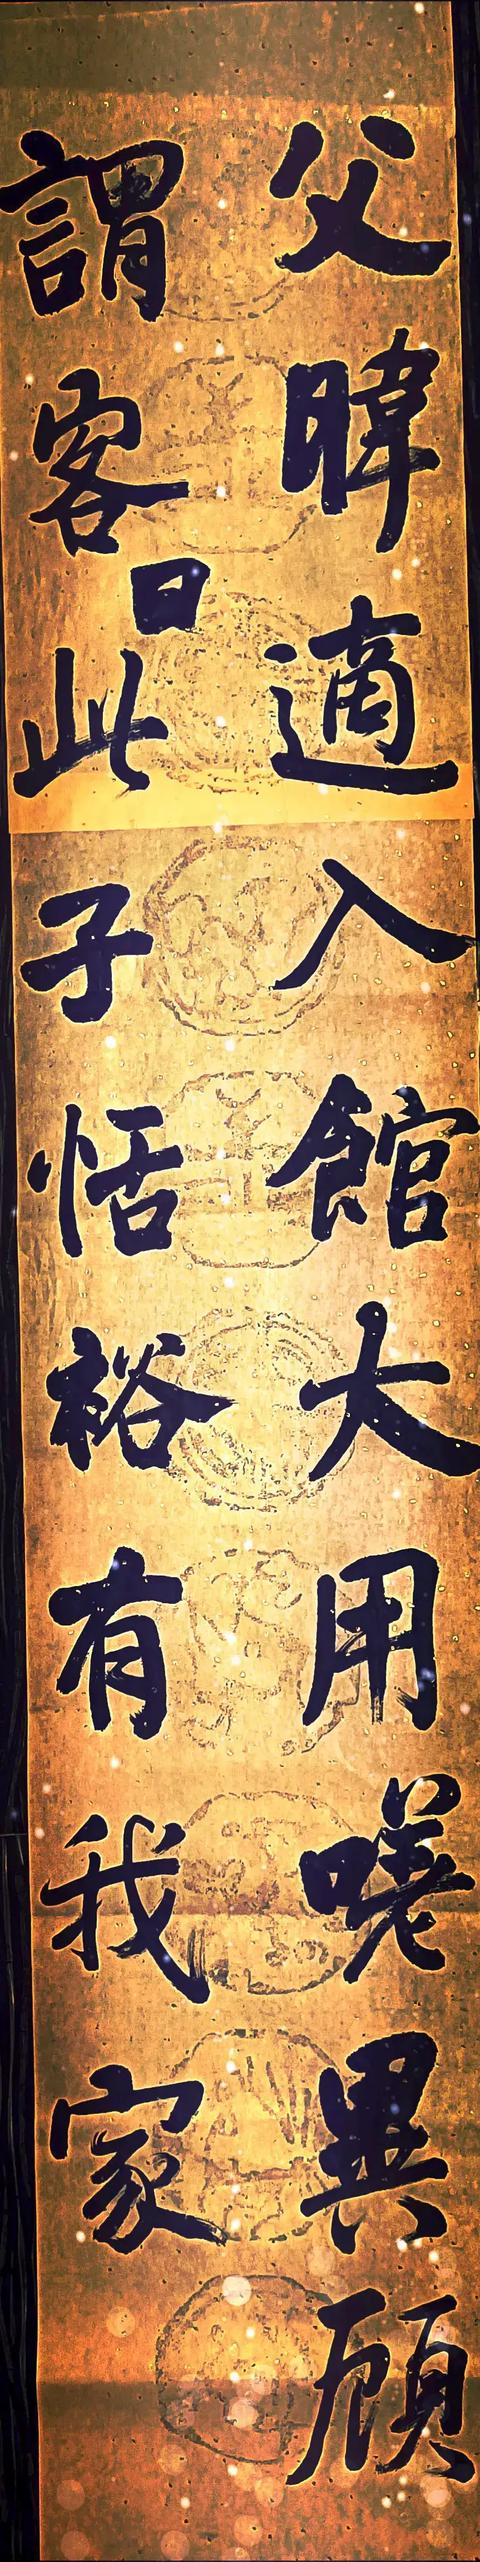 父暐適入館大用嗟異顧
謂客曰此子恬裕有我家